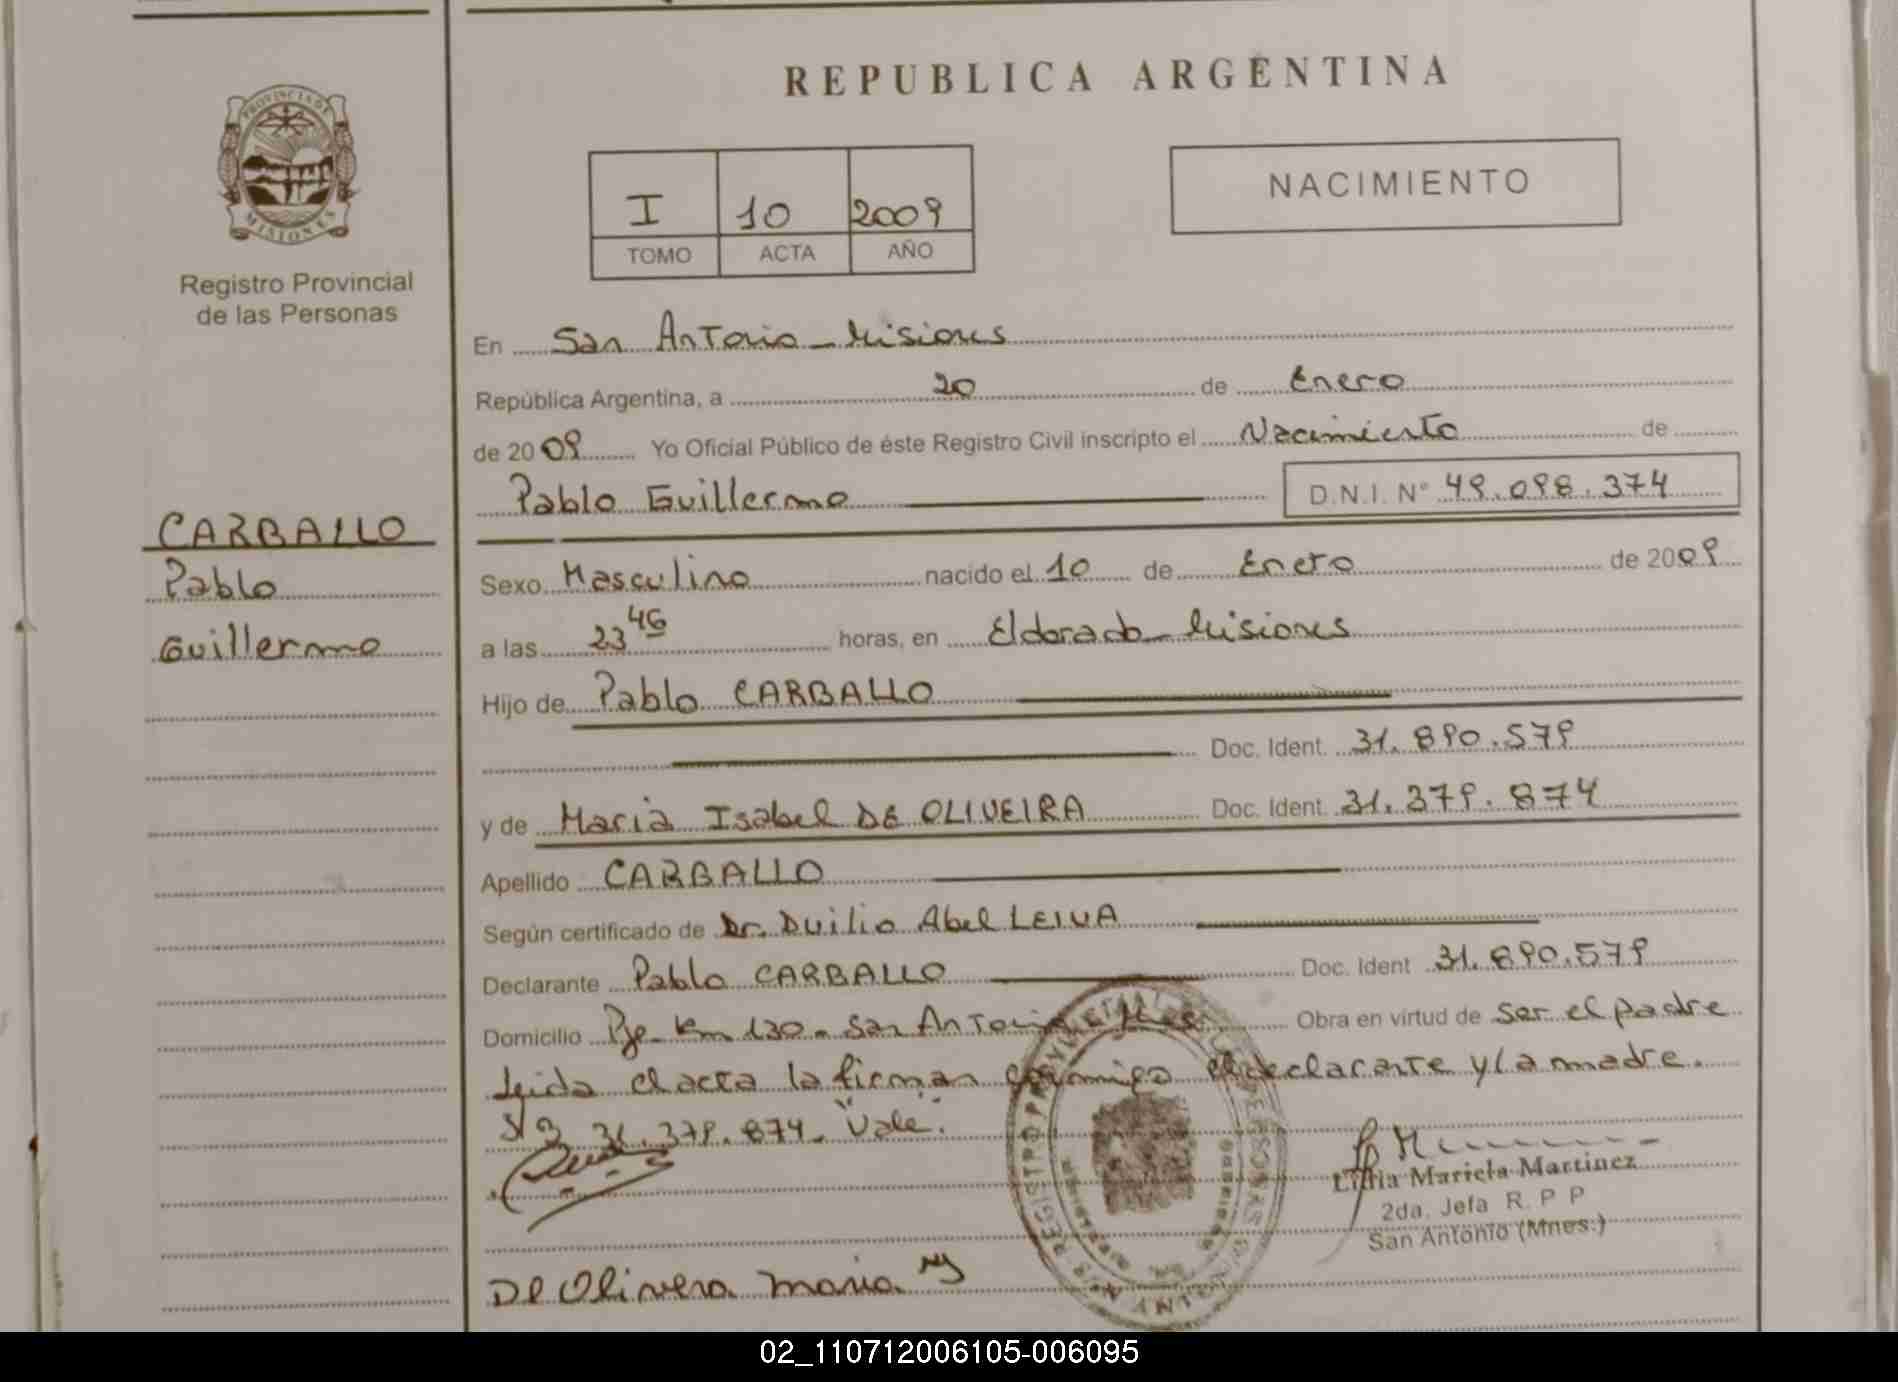 REPUBLICA ARGENTINA
PROVINCIA DE
MISIONES
Registro Provincial
de las Personas
I 10 2009
TOMO ACTA AÑO
NACIMIENTO
En San Antonio - Misiones
República Argentina, a 20 de Enero
de 2009 Yo Oficial Público de éste Registro Civil inscripto el Nacimiento de
Pablo Guillermo D.N.I. Nº 49.098.374
CARBALLO
Pablo
Guillermo
Sexo Masculino nacido el 10 de Enero de 2009
a las 23 46 horas, en Eldorado - Misiones
Hijo de Pablo CARBALLO
Doc. Ident. 31.890.579
y de Maria Isabel DE OLIVEIRA Doc. Ident. 31.379.874
Apellido CARBALLO
Según certificado de Dr. Duilio Abel LEIVA
Declarante Pablo CARBALLO Doc. Ident 31.890.579
Domicilio Pje Km 130 - San Antonio Obra en virtud de ser el padre
Leida el acta la firman conmigo el declarante y la madre.
31.379.874 - "Vale".
Mariela Martinez
2da. Jefa R. P P
San Antonio (Mnes.)
De Olivera maria
02_110712006105-006095